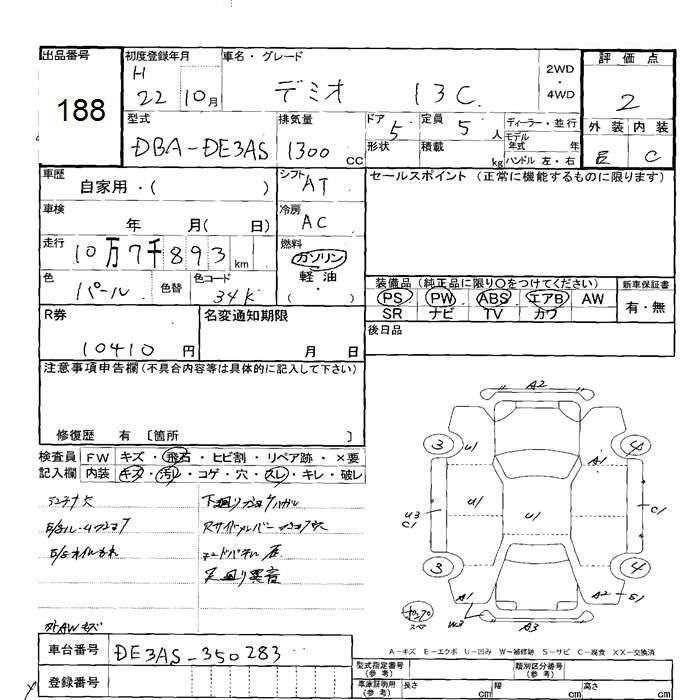 出品番号 188
初度登録年月 H 22 10月
車名・グレード デミオ 13C
2WD・4WD
評価点 2
型式 DBA-DE3AS
排気量 1300 CC
ドア 5 形状
定員 5 人 積載 kg
ディーラー・並行
モデル年式 年
ハンドル 左・右
外装 内装 C
車歴 自家用・( )
シフト AT
セールスポイント(正常に機能するものに限ります)
車検 年 月( 日)
冷房 AC
走行 10万7千893km
燃料 ガソリン 軽油 ・ ( )
色 パール 色替 色コード 34K
装備品(純正品に限り○をつけてください) 新車保証書
PS PW ABS エアB AW 有・無
SR ナビ TV カワ
R券 10410円
名変通知期限 月 日
後日品
注意事項申告欄(不具合内容等は具体的に記入して下さい)
修復歴 有 〔箇所 〕
検査員 FW キズ・飛石・ヒビ割・リペア跡・×要
記入欄 内装 キズ・汚レ・コゲ・穴・スレ・キレ・破レ
足廻り異音
外AWキズ
A2
3 U1 A1 4
U3 C1 U1 U1 C1
3 4
A1 W3 A3 A2 S1
スペア
A-キズ E-エクボ U-凹み W-補修跡 S-サビ C-腐食 XX-交換済
車台番号 DE3AS-350283
登録番号
型式指定番号(参考) 類別区分番号(参考)
車庫証明用(参考) 長さ cm 幅 cm 高さ cm